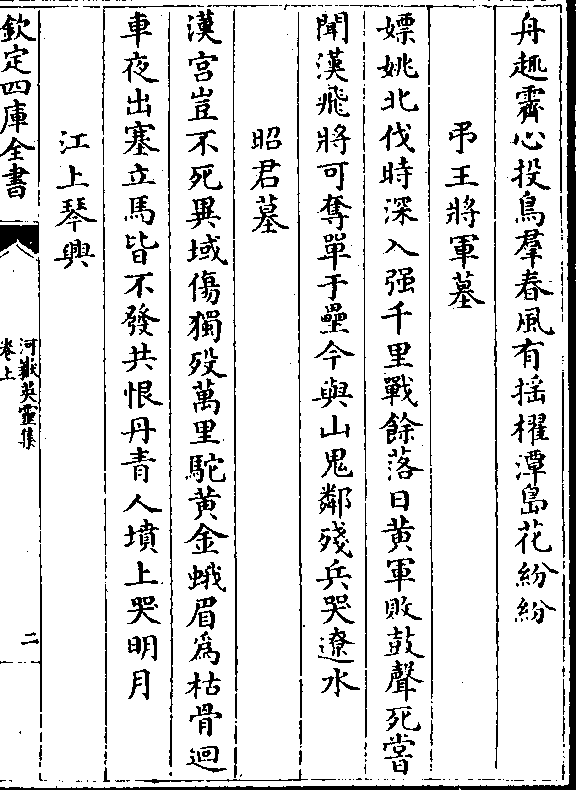 舟趣霽心投鳥羣春風有揺櫂潭島花紛紛
弔王將軍墓
嫖姚北伐時深入强千里戰餘落日黄軍敗鼓聲死嘗
聞漢飛將可奪單于壘今與山鬼鄰殘兵哭遼水
昭君墓
漢宫豈不死異域傷獨殁萬里駝黄金蛾眉爲枯骨迴
車夜出塞立馬皆不發共恨丹青人墳上哭明月
江上琴興
欽定四庫全書
河嶽英靈集
卷上
二